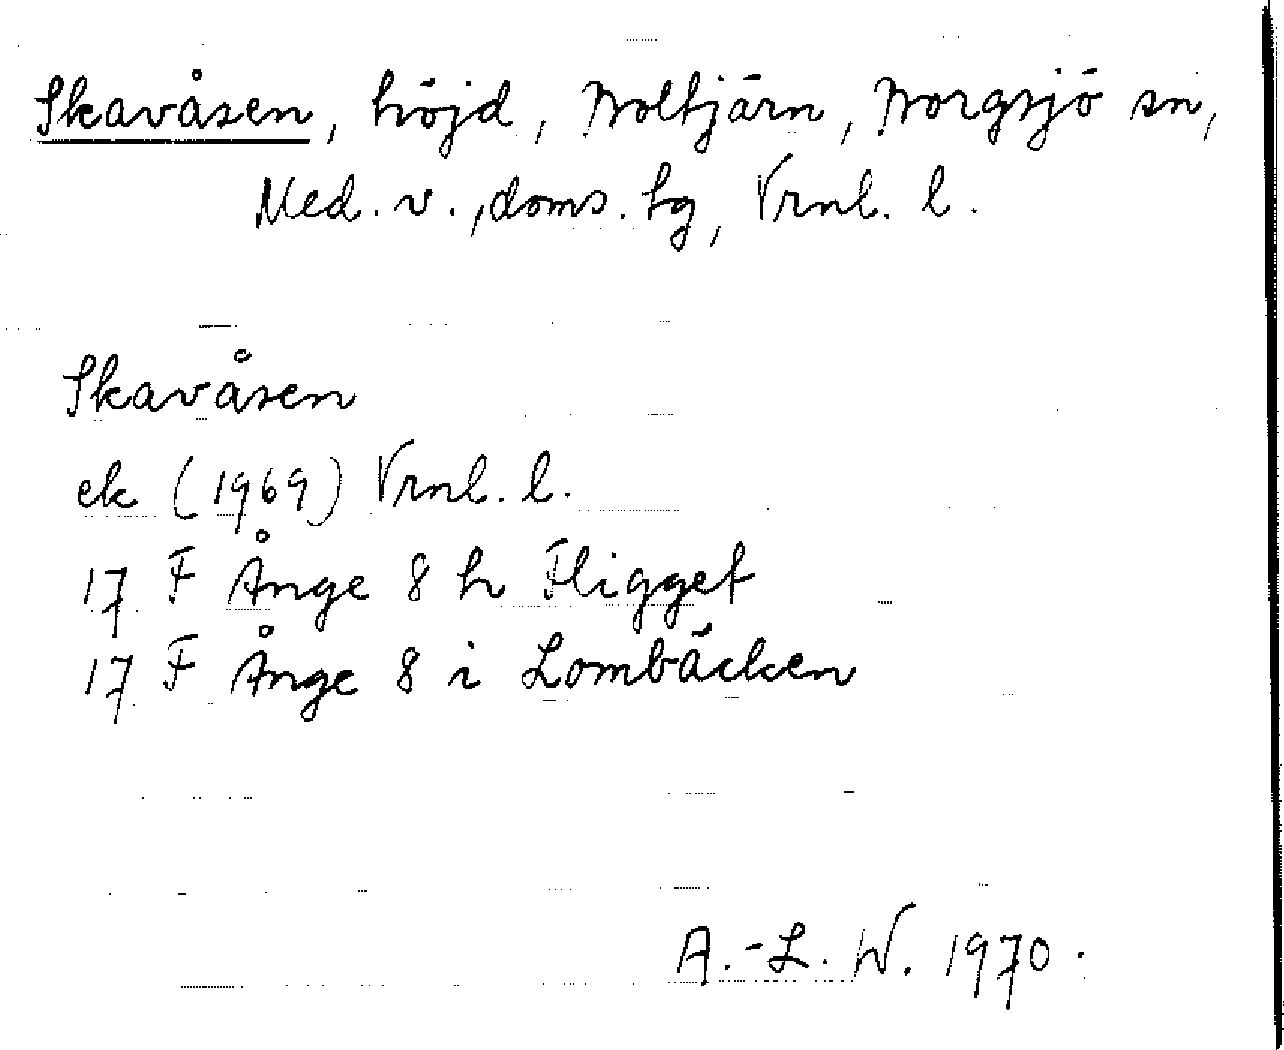 Skavåsen, höjd, Boltjärn, Borgsjö sn,
Med. v., doms. hg, Vrnl. l.
Skavåsen
ek (1969) Vrnl. l.
17 F Ånge 8 h Fligget
17 F Ånge 8 i Lombäcken
A.-L. W. 1970.